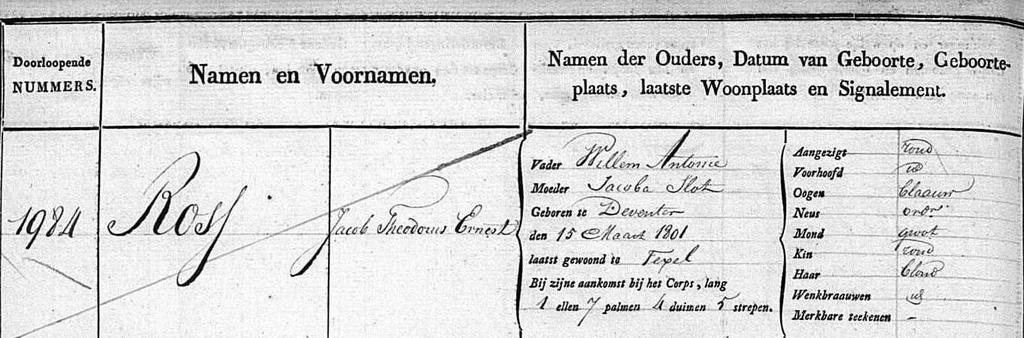 Doorloopende
NUMMERS.
Namen en Voornamen,
Namen der Ouders, Datum van Geboorte, Geboorte-
plaats, laatste Woonplaats en Signalement.
1984
Ross
Jacob Theodorus Ernest
Vader Willem Antonie
Moeder Jacoba Slot
Geboren te Deventer
den 15 Maart 1801
laatst gewoond te Texel
Bij zijne aankomst bij het Corps, lang
1 ellen 7 palmen 4 duimen 5 strepen.
Aangezigt rond
Voorhoofd id
Oogen blaauw
Neus ordr
Mond groot
Kin rond
Haar blond
Wenkbraauwen id
Merkbare teekenen –